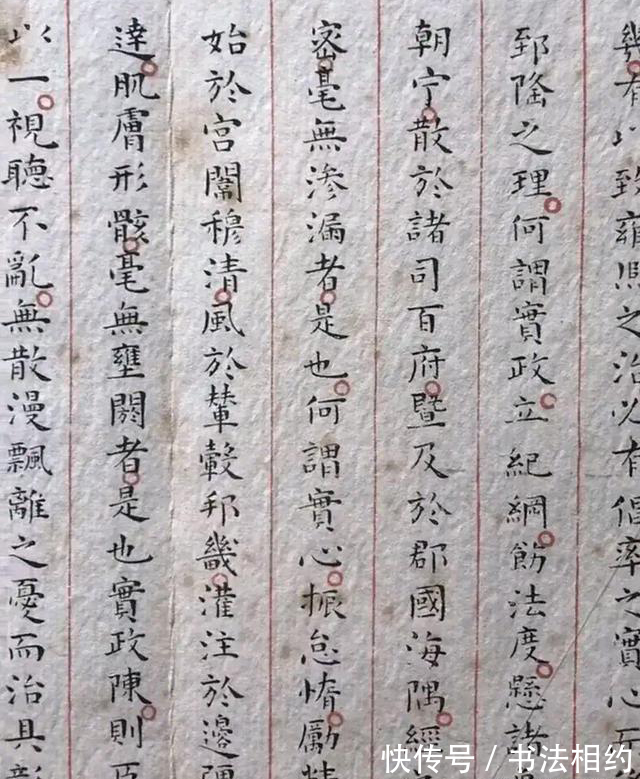 幾有以致雍熙之治必有倡率之實心
郅隆之理何謂實政立紀綱飭法度懸諸
朝宁散於諸司百府暨及於郡國海隅經
密毫無渗漏者是也何謂實心振怠惰勵精
始於宮闈穆清風於輦轂邦畿灌注於邊陲
達肌膚形骸毫無壅閼者是也實政陳則臣
以一視聽不亂無散漫飄離之憂而治具彰
快传号 / 书法相约